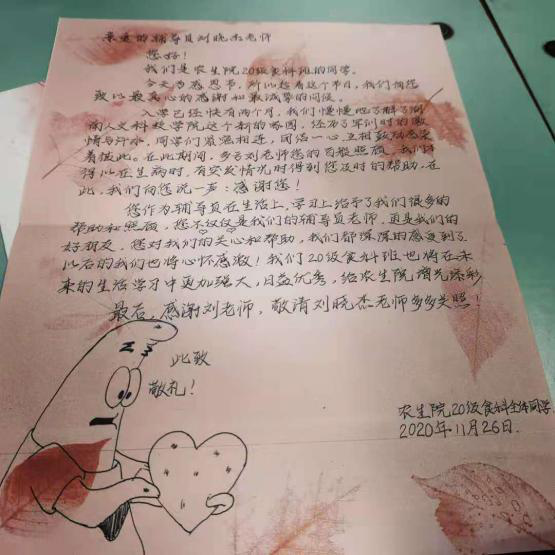 亲爱的辅导员刘晓杰老师
您好！
我们是农生院20级食科班的同学。
今天为感恩节，所以趁着这个节日，我们向您
致以最真心的感谢和最诚挚的问候。
入学已经快有两个月，我们慢慢地了解了湖
南人文科技学院这个新的家园，经历了军训时的激
情与汗水，同学们紧紧相连，团结一心互相鼓励感染
着彼此。在此期间，多亏刘老师您的百般照顾，我们才
得以在生病时、有突发情况时得到您及时的帮助，在
此，我们向您说一声：感谢您！
您作为辅导员在生活上，学习上给予了我们很多的
帮助和照顾，您不仅仅是我们的辅导员老师，更是我们的
好朋友，您对我们的关心和帮助，我们都深深的感受到了
以后的我们也将心怀感激！我们20级食科班也将在未
来的生活学习中更加强大，日益优秀，给农生院增光添彩
最后，感谢刘老师，敬请刘晓杰老师多多关照！
此致
敬礼！
农生院20级食科全体同学
2020年11月26日.